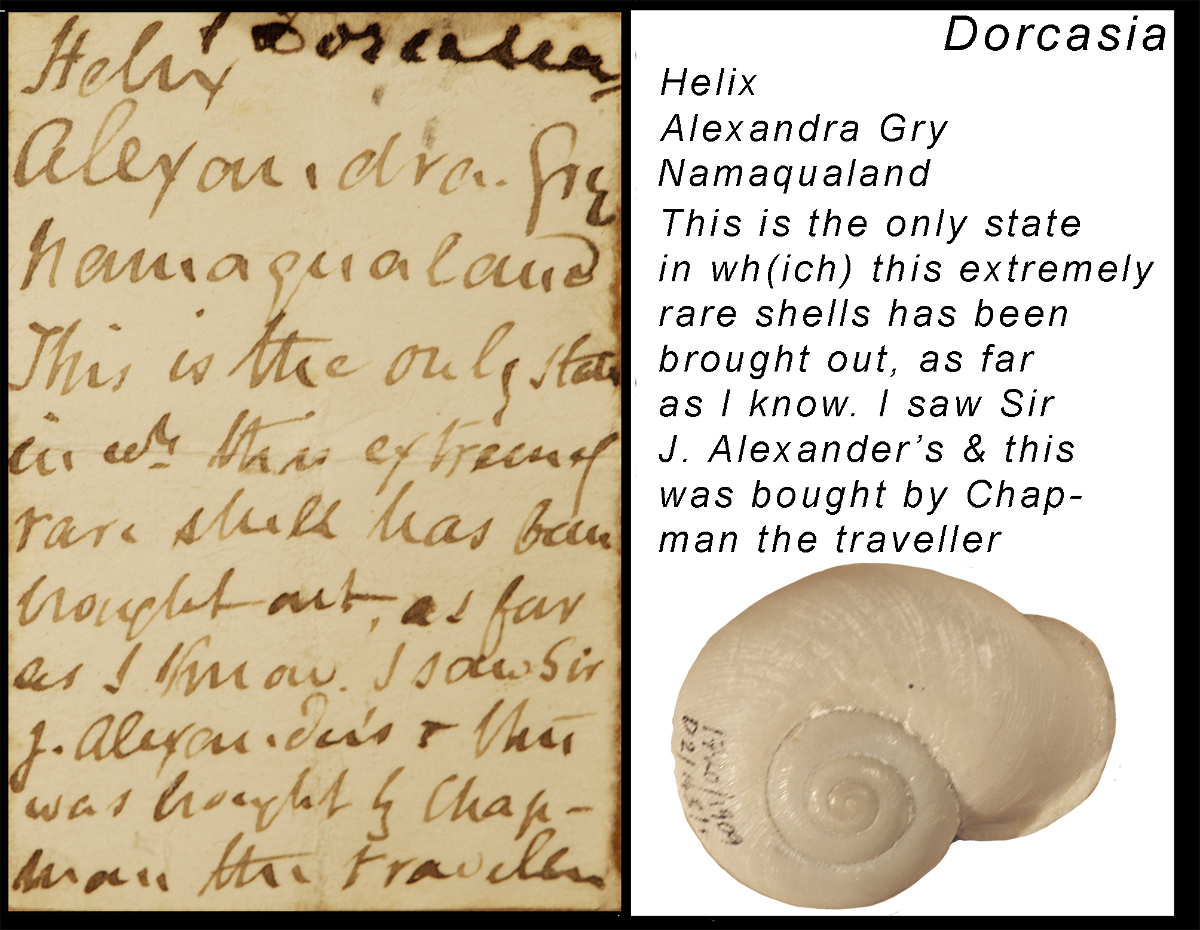 Dorcasia
Helix
Alexandra. Gry
Namaqualand
This is the only state
in wh. this extremely
rare shell has been
brought out, as far
as I know. I saw Sir
J. Alexander's & this
was brought by Chap-
man the traveller
Dorcasia
Helix
Alexandra Gry
Namaqualand
This is the only state
in wh(ich) this extremely
rare shells has been
brought out, as far
as I know. I saw Sir
J. Alexander’s & this
was bought by Chap-
man the traveller